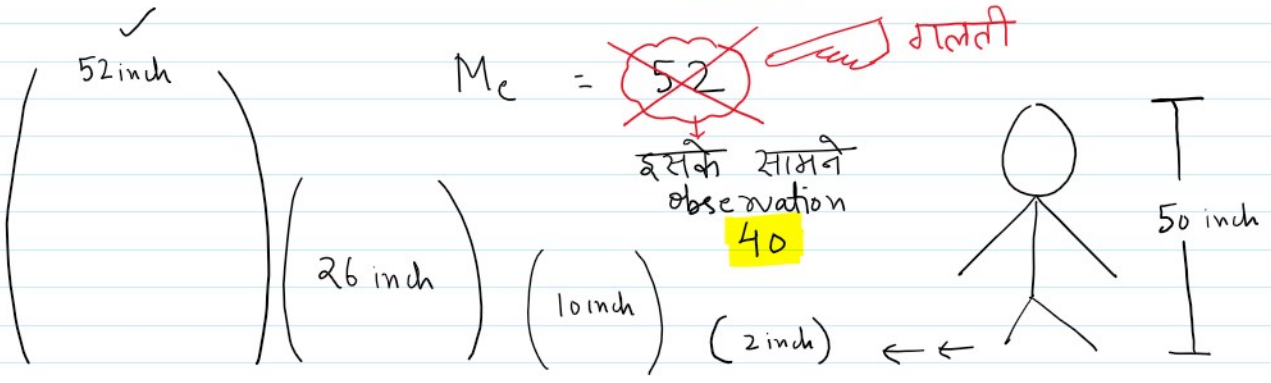 52 inch
Me = 52
गलती
इसके सामने
observation
40
50 inch
26 inch
10 inch
(2 inch)